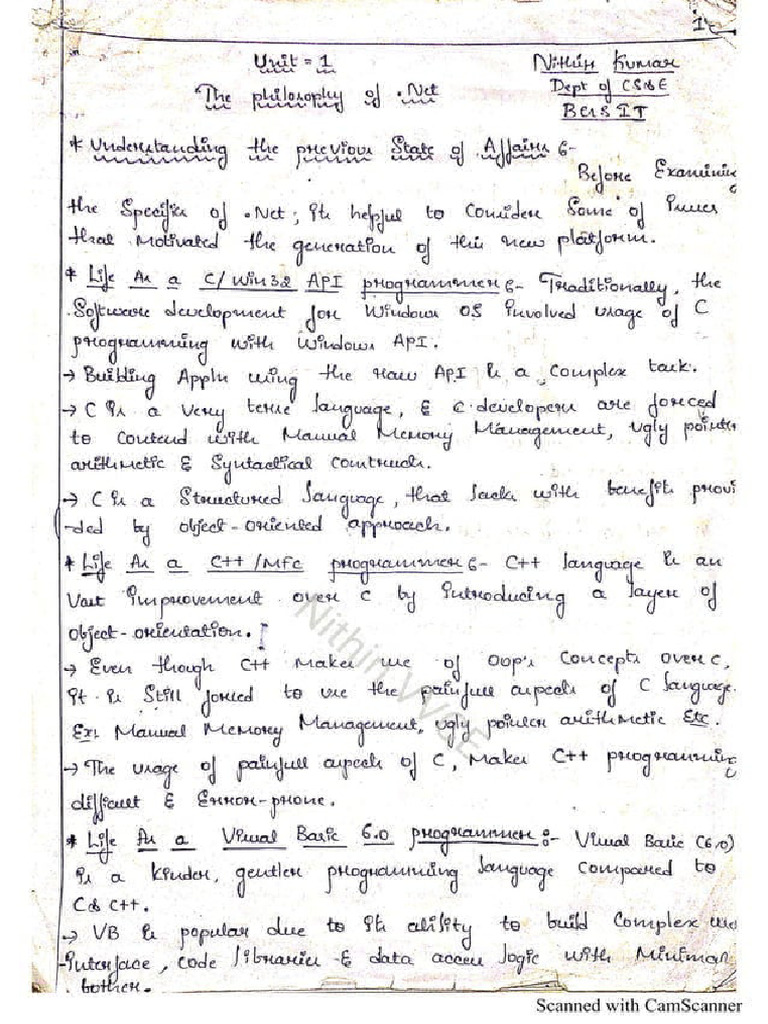 1
Unit = 1
Nithin Kumar
Dept of CS&E
The philosophy of .Net
* Understanding the previous State of Affairs :-
Before Examining
the Specifics of .Net, it's helpful to consider Some of issues
that Motivated the generation of this new platform.
* Life As a C/Win32 API programmer :- Traditionally, the
Software development for Windows OS involved usage of C
programming with Windows API.
→ Building Appln using the raw API is a complex task.
→ C is a very terse language, & C developers are forced
to contend with Manual Memory Management, ugly pointer
arithmetic & Syntactical constructs.
→ C is a Structured language, that lacks with benefits provi
-ded by object-oriented approach.
* Life As a C++/MFC programmer :- C++ language is an
Vast improvement over C by introducing a layer of
object-orientation.
→ Even though C++ makes use of OOP's concepts over C,
it is still forced to use the painfull aspects of C language.
Ex: Manual Memory Management, ugly pointer arithmetic Etc.
→ The usage of painfull aspects of C, makes C++ programming
difficult & Error-phone.
* Life As a Visual Basic 6.0 programmer :- Visual Basic (6.0)
is a kinder, gentler programming language compared to
C & C++.
→ VB is popular due to its ability to build complex user
-interface, code libraries & data access logic with Minimal
bother.
Nithin VVCE
Scanned with CamScanner